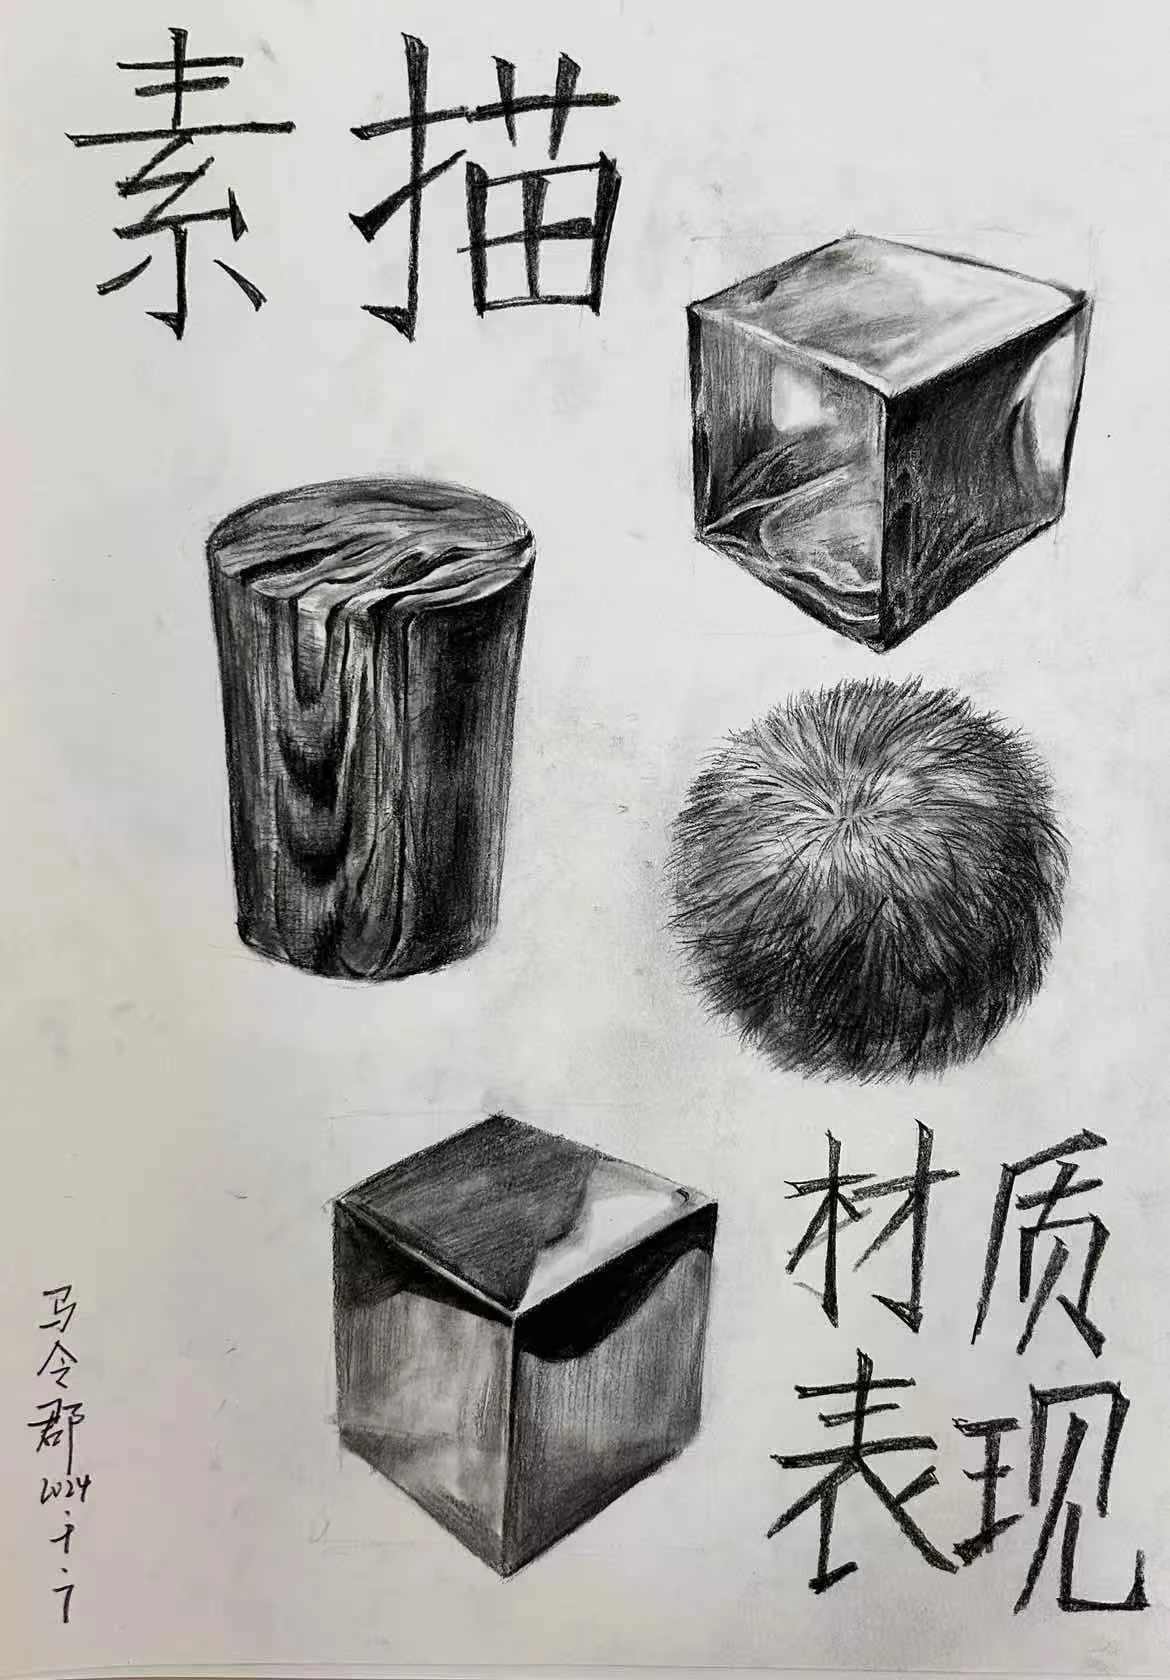 素描
材质
表现
马令郡
2024.